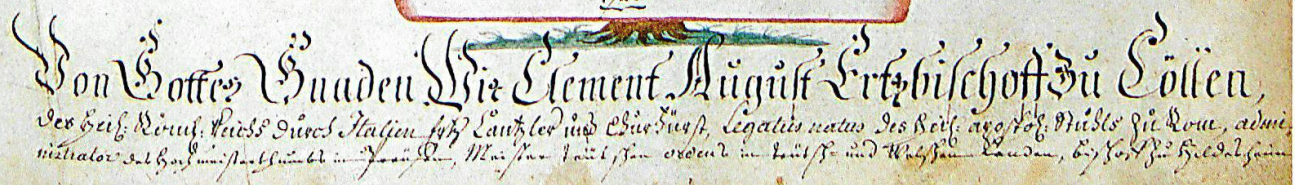 Von Gottes Gnaden Wir Clement August Ertzbischoff Zu Cöllen,
des Heil: Röm: Reichs durch Italien Ertz Cantzler und Churfürst, Legatus natus des Heil: apostol: Stuhls Zu Rom, admi-
nistrator des Hochmeisterthumbs in Preüssen, Meister teütschen ordens in teütsch- und Welschen Landen, bischoff zu Hildesheim